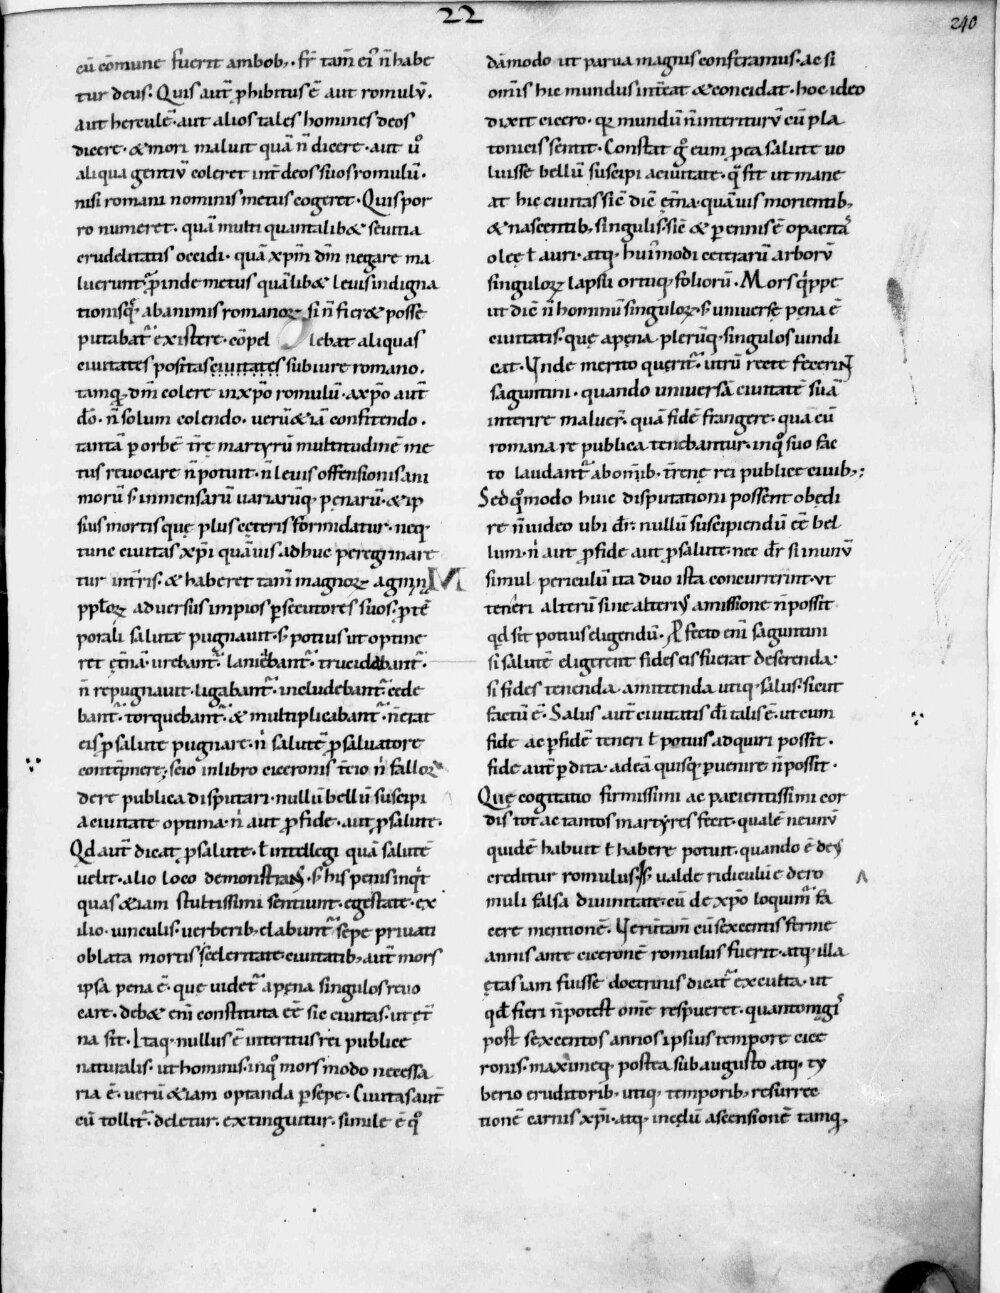 22
240
cū cōmune fuerit ambob;. fr̄ tam̄ ei' n̄ habe
tur deus. Quis aut̄ ꝓhibitus ē aut romulū.
aut herculē. aut alios tales homines deos
dicere. & mori maluit quā n̄ dicere. aut ů
aliqua gentiū coleret int̄ deos suos romulū.
nisi romani nominis metus cogeret. Quis por
ro numeret. quā multi quantalib& seuitia
crudelitatis occidi. quā xp̄m dm̄ negare ma
luerunt. ꝓinde metus quālib& leuis indigna
tionisq̨ ab animis romanoꝝ si n̄ fier& posse
putabat᷑ existere. cōpel lebat aliquas
ciuitates positas ciuitates sub iure romano.
tamq̨ dm̄ colere in xp̄o romulū. a xp̄o aut̄
dō. n̄ solum colendo. uerū &iā confitendo.
tantā ꝑ orbē tr̄ę martyrū multitudinē me
tus reuocare n̄ potuit. n̄ leuis offensionis ani
morū s; inmensarū uariarūq̨ pęnarū. & ip
sius mortis quę plus cęteris formidatur. neq̨
tunc ciuitas xp̄i quāuis adhuc peregrinare
tur in tr̄is. & haberet tam̄ magnoꝝ agmina
ppl̄oꝝ aduersus impios ꝑsecutores suos. ꝓ tē
porali salute pugnauit. s; potius ut optine
ret ęt̄nā. urebant᷑. laniebant᷑. trucidabant᷑.
n̄ repugnauit. ligabant᷑. includebant᷑. cede
bant᷑. torquebant᷑. & multiplicabant᷑. n̄ erat
eis ꝓ salute pugnare. n' salutē ꝓ saluatore
contēpnere; scio in libro ciceronis t̄cio n' falloꝝ
dere publica disputari. nullū bellū suscipi
a ciuitate optima. n' aut ꝓ fide. aut ꝓ salute.
Qd aut̄ dicat ꝓ salute. ł intellegi quā salutē
uelit. alio loco demonstrans. s; his penis inqt
quas &iam stultissimi sentiunt. egestate. ex
ilio. uinculis. uerberib; elabunt᷑ sępe priuati
oblata mortis sceleritate. ciuitatib; aut̄ mors
ipsa pena ē. que uidet᷑ a pęna singulos reuo
care. deb& eni constituta eē sic ciuitas. ut ęt̄
na sit. Itaq̨ nullus ē interitus rei publice
naturalis. ut hominis. inqͦ mors modo necessa
ria ē. uerū &iam optanda ꝑsepe. Ciuitas aut̄
cū tollit᷑. deletur. extinguitur. simile ē qͦ
dāmodo ut parua magnis conferamus. ac si
om̄is hic mundus int̄eat & concidat. hoc ideo
dixit cicero. qꝛ mundū n̄ interiturū cū pla
tonicis sentit. Constat gͦ eum ꝓ ea salute uo
luisse bellū suscipi a ciuitate. qͣ fit ut mane
at hic ciuitas sic̄ dic̄ ęt̄na. quāuis morientib;
& nascentib; singulis. sic̄ & ꝑennis ē opacitas
oleę ł lauri. atq̨ hui'modi cetrarū arborū
singuloꝝ lapsu ortuq̨ folioruͣ. Mors q'ppe
ut dic̄ n̄ hominū singuloꝝ. s; uniuerse pęna ē
ciuitatis. que a pęna plerūq̨ singulos uindi
cat. Vnde merito querit᷑. utrū recte fecerint
saguntini. quando uniuersā ciuitatē suā
interire maluer̄. quā fidē frangere. qua cū
romana re publica tenebantur. inqͦ suo fac
to laudant᷑ ab om̄ib; t̄rene rei publice ciuib;;
Sed qͦmodo huic disputationi possent obedi
re n̄ uideo ubi dr̄. nullū suscipiendū eē bel
lum. n' aut ꝓ fide aut ꝓ salute. nec dr̄ si in unū
simul periculū ita duo ista concurrerint. ut
teneri alterū sine alterius amissione n̄ possit
qd sit potius eligendū. Ꝓfecto eni saguntini
si salutē eligerent fides eis fuerat deserenda.
si fides tenenda. amittenda utiq̨ salus. sicut
factū ē. Salus aut̄ ciuitatis dī talis ē. ut cum
fide ac ꝑ fidē teneri ł potius adquiri possit.
fide aut̄ ꝑdita. ad eā quisq̨ ꝑuenire n̄ possit.
Que cogitatio firmissimi ac patientissimi cor
dis tot ac tantos martyres fecit. qualē ne unū
quidē habuit ł habere potuit. quando ē deus
creditur romulus. S; ualde ridiculū ē de ro
muli falsa diuinitate. cū de xp̄o loquim᷑ fa
cere mentionē. Verūtam̄ cū sexcentis ferme
annis ante ciceronē romulus fuerit. atq̨ illa
ętas iam fuisse doctrinis dicat᷑ exculta. ut
qd fieri n̄ potest om̄e respueret. quantomagis
post sexcentos annos ipsius tempore cice
ronis. maximeq̨ postea sub augusto atq̨ ty
berio eruditorib; utiq̨ temporib; resurrec
tionē carnis xp̄i. atq̨ in cęlū ascensionē tamq̨